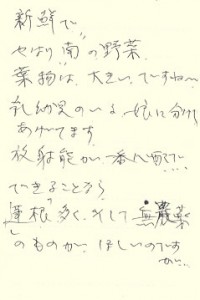 新鮮で
やはり"南"の野菜
葉物は、大きいですね〜
乳幼児のいる娘に分けて
あげてます
放射能が一番心配で…
できることなら
「蓮根」多く、そして無農薬
のものが、ほしいのです
が…